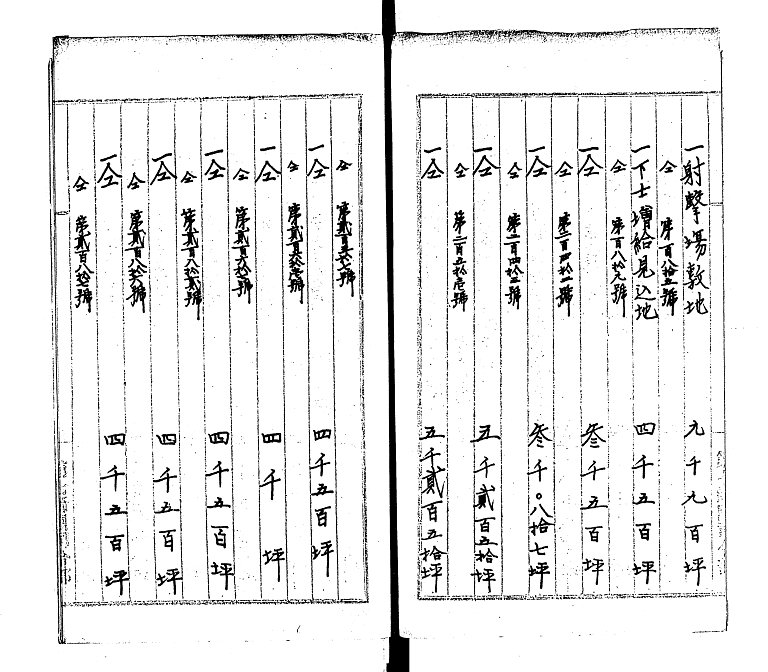 一射撃場敷地 九千九百坪
仝 第百八拾五號
一下士増給見込地 四千五百坪
仝 第百八拾九號
一仝 参千五百坪
仝 第二百四拾一號
一仝 参千〇八拾七坪
仝 第二百四拾三號
一仝 五千貳百五拾坪
仝 第二百五拾壱號
一仝 五千貳百五拾坪
仝
一仝 四千五百坪
仝
一仝 四千坪
仝
一仝 四千五百坪
仝 第貳百八拾貳號
一仝 四千五百坪
仝 第貳百八拾號
一仝 四千五百坪
仝 第貳百八拾號